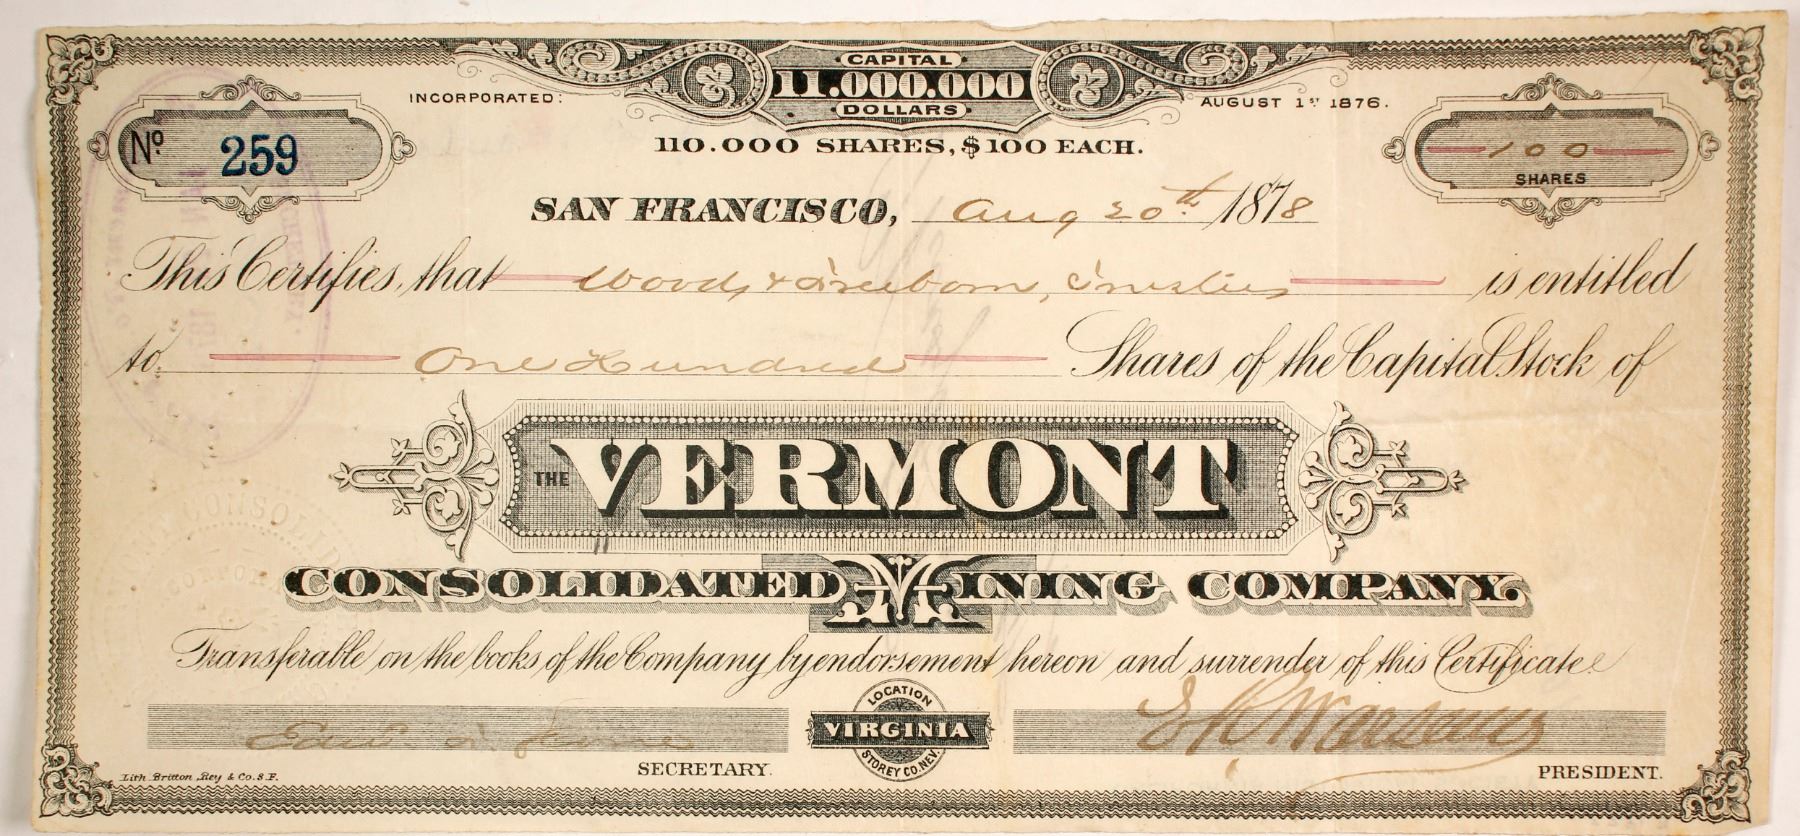 CAPITAL
11.000.000
DOLLARS
INCORPORATED:
AUGUST 1ST 1876.
110.000 SHARES, $100 EACH.
No. 259
100
SHARES
SAN FRANCISCO, Aug 20th 1878
This Certifies that Woods & Freeborn, Trustees is entitled
to One Hundred Shares of the Capital Stock of
THE VERMONT
CONSOLIDATED MINING COMPANY.
Transferable on the books of the Company by endorsement hereon and surrender of this Certificate
LOCATION
VIRGINIA
STOREY CO. NEV.
SECRETARY.
PRESIDENT.
Lith. Britton, Rey & Co. S.F.
CONSOLID